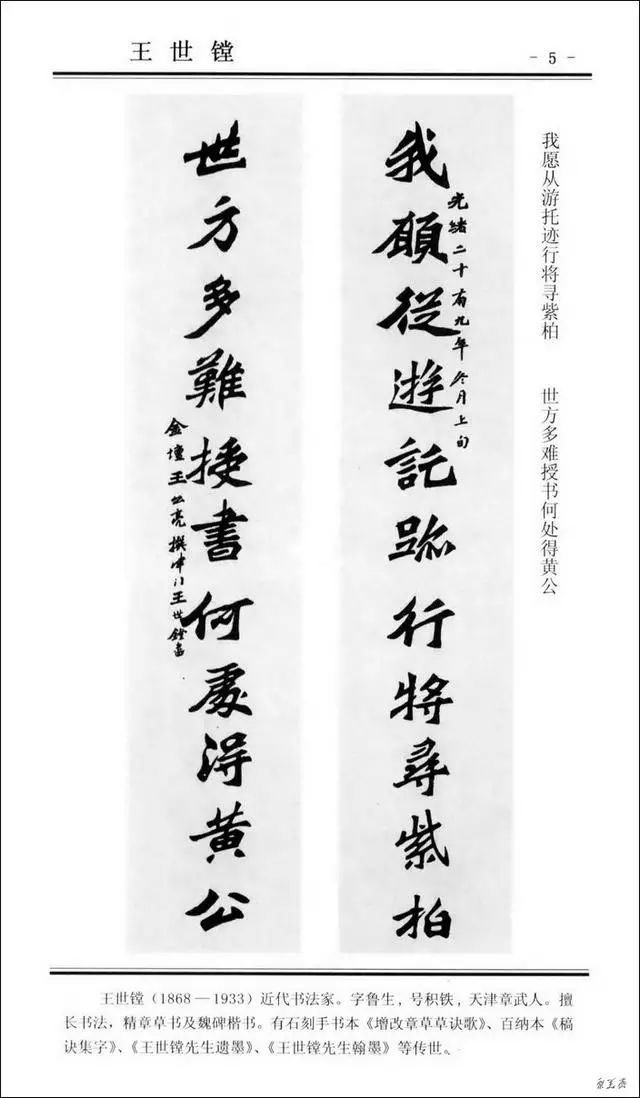 王世镗
- 5 -
我愿从游托迹行将寻紫柏 世方多难授书何处得黄公
我願從遊託跡行將尋紫柏
光緒二十有九年冬月上旬
世方多難授書何處得黄公
金壇王
亮撰
王世鏜書
王世镗（1868—1933）近代书法家。字鲁生，号积铁，天津章武人。擅
长书法，精章草书及魏碑楷书。有石刻手书本《增改章草草诀歌》、百纳本《稿
诀集字》、《王世镗先生遗墨》、《王世镗先生翰墨》等传世。